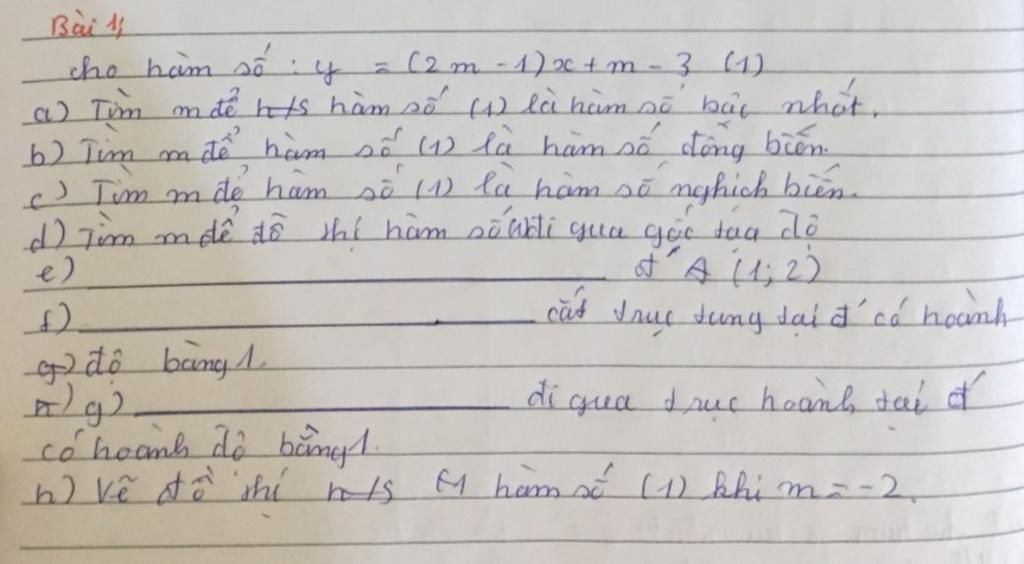 Bài 1,
cho hàm số : y = (2m - 1)x + m - 3 (1)
a) Tìm m để h/s hàm số (1) là hàm số bậc nhất.
b) Tìm m để hàm số (1) là hàm số đồng biến.
c) Tìm m để hàm số (1) là hàm số nghịch biến.
d) Tìm m để đồ thị hàm số đi qua gốc tọa độ
e) ____ đ' A (1; 2)
f) ____ cắt trục tung tại đ' có hoành
g) độ bằng 1.
h) g) ____ đi qua trục hoành tại đ'
có hoành độ bằng 1.
h) Vẽ đồ thị h/s hàm số (1) khi m = -2.